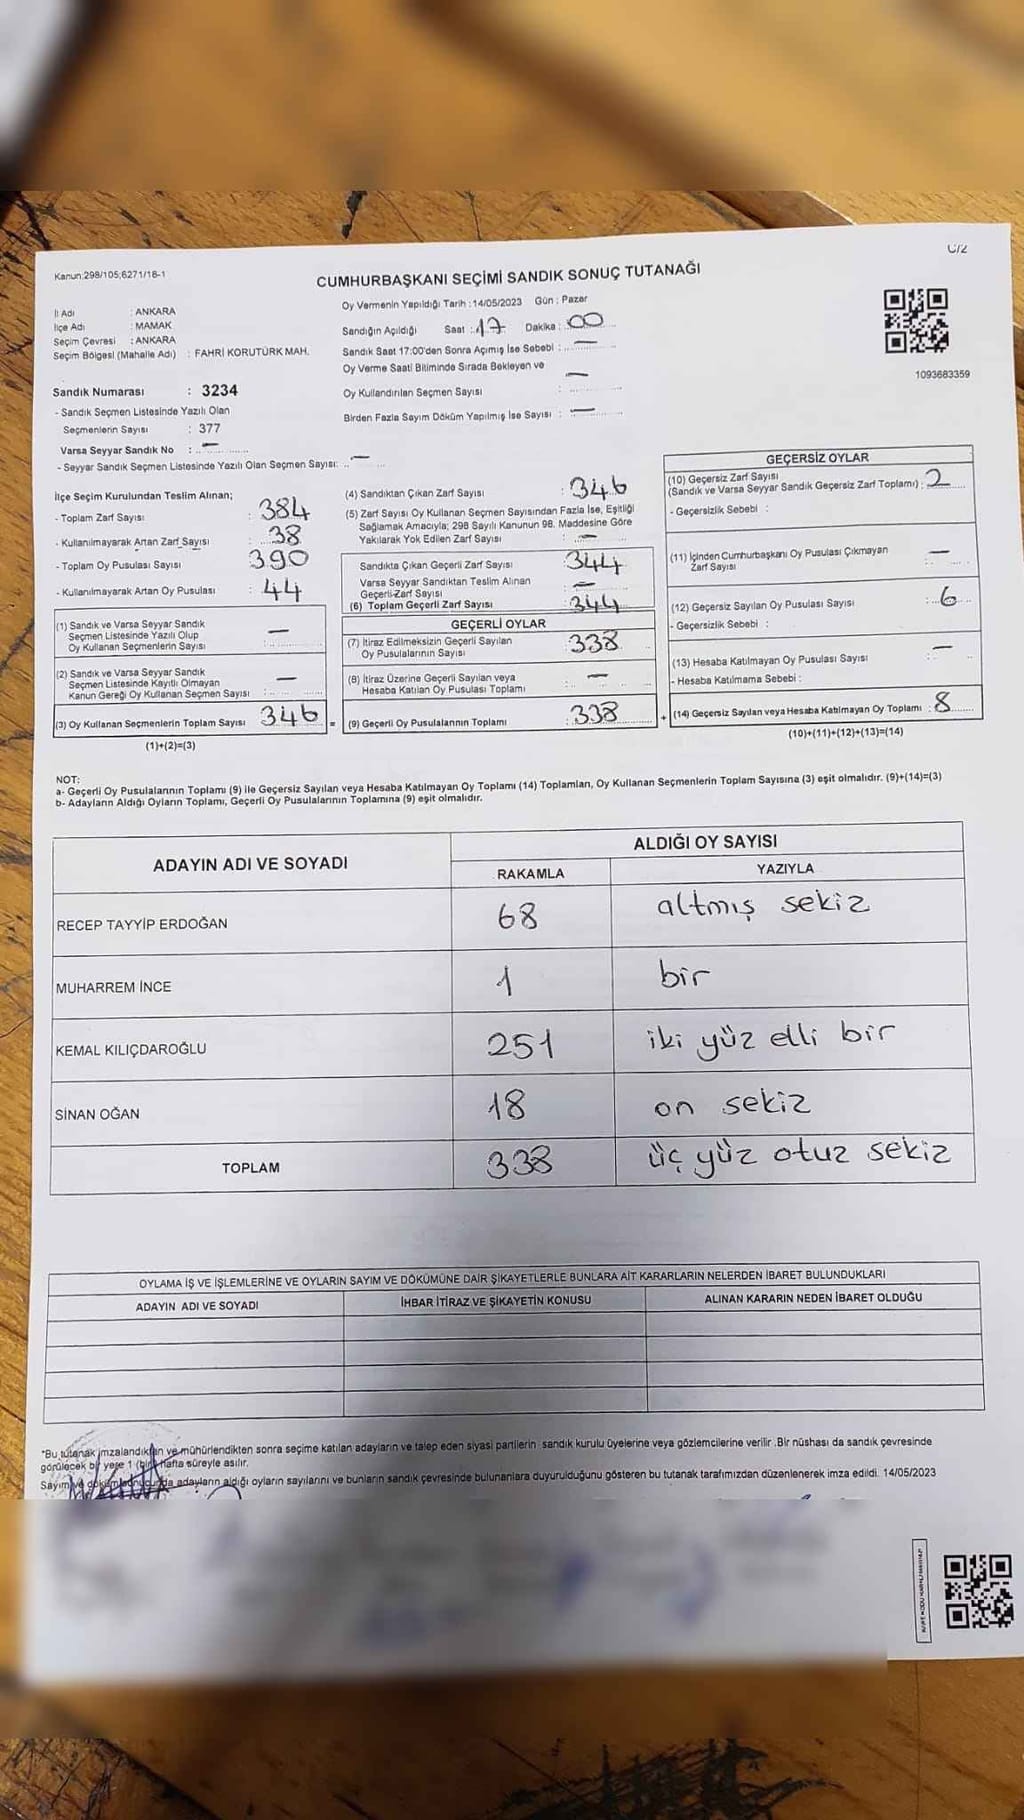 C/2
Kanun:298/105;6271/18-1
CUMHURBAŞKANI SEÇİMİ SANDIK SONUÇ TUTANAĞI
Oy Vermenin Yapıldığı Tarih : 14/05/2023 Gün : Pazar
İl Adı : ANKARA
İlçe Adı : MAMAK
Seçim Çevresi : ANKARA
Seçim Bölgesi (Mahalle Adı) : FAHRİ KORUTÜRK MAH.
Sandığın Açıldığı Saat : 17 Dakika : 00
Sandık Saat 17:00'den Sonra Açımış İse Sebebi : —
Oy Verme Saati Bitiminde Sırada Bekleyen ve
Oy Kullandırılan Seçmen Sayısı : —
Birden Fazla Sayım Döküm Yapılmış İse Sayısı : —
1093683359
Sandık Numarası : 3234
- Sandık Seçmen Listesinde Yazılı Olan
Seçmenlerin Sayısı : 377
Varsa Seyyar Sandık No : —
- Seyyar Sandık Seçmen Listesinde Yazılı Olan Seçmen Sayısı: —
İlçe Seçim Kurulundan Teslim Alınan;
- Toplam Zarf Sayısı : 384
- Kullanılmayarak Artan Zarf Sayısı : 38
- Toplam Oy Pusulası Sayısı : 390
- Kullanılmayarak Artan Oy Pusulası : 44
(1) Sandık ve Varsa Seyyar Sandık
Seçmen Listesinde Yazılı Olup
Oy Kullanan Seçmenlerin Sayısı : —
(2) Sandık ve Varsa Seyyar Sandık
Seçmen Listesinde Kayıtlı Olmayan
Kanun Gereği Oy Kullanan Seçmen Sayısı : —
(3) Oy Kullanan Seçmenlerin Toplam Sayısı 346
(1)+(2)=(3)
(4) Sandıktan Çıkan Zarf Sayısı : 346
(5) Zarf Sayısı Oy Kullanan Seçmen Sayısından Fazla İse, Eşitliği
Sağlamak Amacıyla; 298 Sayılı Kanunun 98. Maddesine Göre
Yakılarak Yok Edilen Zarf Sayısı : —
Sandıkta Çıkan Geçerli Zarf Sayısı : 344
Varsa Seyyar Sandıktan Teslim Alınan
Geçerli Zarf Sayısı : —
(6) Toplam Geçerli Zarf Sayısı : 344
GEÇERLİ OYLAR
(7) İtiraz Edilmeksizin Geçerli Sayılan
Oy Pusulalarının Sayısı : 338
(8) İtiraz Üzerine Geçerli Sayılan veya
Hesaba Katılan Oy Pusulası Toplamı : —
= (9) Geçerli Oy Pusulalarının Toplamı : 338
GEÇERSİZ OYLAR
(10) Geçersiz Zarf Sayısı
(Sandık ve Varsa Seyyar Sandık Geçersiz Zarf Toplamı) : 2
- Geçersizlik Sebebi :
(11) İçinden Cumhurbaşkanı Oy Pusulası Çıkmayan
Zarf Sayısı : —
(12) Geçersiz Sayılan Oy Pusulası Sayısı : 6
- Geçersizlik Sebebi :
(13) Hesaba Katılmayan Oy Pusulası Sayısı : —
- Hesaba Katılmama Sebebi :
+ (14) Geçersiz Sayılan veya Hesaba Katılmayan Oy Toplamı : 8
(10)+(11)+(12)+(13)=(14)
NOT:
a- Geçerli Oy Pusulalarının Toplamı (9) ile Geçersiz Sayılan veya Hesaba Katılmayan Oy Toplamı (14) Toplamları, Oy Kullanan Seçmenlerin Toplam Sayısına (3) eşit olmalıdır. (9)+(14)=(3)
b- Adayların Aldığı Oyların Toplamı, Geçerli Oy Pusulalarının Toplamına (9) eşit olmalıdır.
ADAYIN ADI VE SOYADI ALDIĞI OY SAYISI
RAKAMLA YAZIYLA
RECEP TAYYİP ERDOĞAN 68 altmış sekiz
MUHARREM İNCE 1 bir
KEMAL KILIÇDAROĞLU 251 iki yüz elli bir
SİNAN OĞAN 18 on sekiz
TOPLAM 338 üç yüz otuz sekiz
OYLAMA İŞ VE İŞLEMLERİNE VE OYLARIN SAYIM VE DÖKÜMÜNE DAİR ŞİKAYETLERLE BUNLARA AİT KARARLARIN NELERDEN İBARET BULUNDUKLARI
ADAYIN ADI VE SOYADI İHBAR İTİRAZ VE ŞİKAYETİN KONUSU ALINAN KARARIN NEDEN İBARET OLDUĞU
*Bu tutanak imzalandıktan ve mühürlendikten sonra seçime katılan adayların ve talep eden siyasi partilerin sandık kurulu üyelerine veya gözlemcilerine verilir. Bir nüshası da sandık çevresinde
görülecek bir yere 1 (bir) hafta süreyle asılır.
Sayım ve döküm sonucunda adayların aldığı oyların sayılarını ve bunların sandık çevresinde bulunanlara duyurulduğunu gösteren bu tutanak tarafımızdan düzenlenerek imza edildi. 14/05/2023